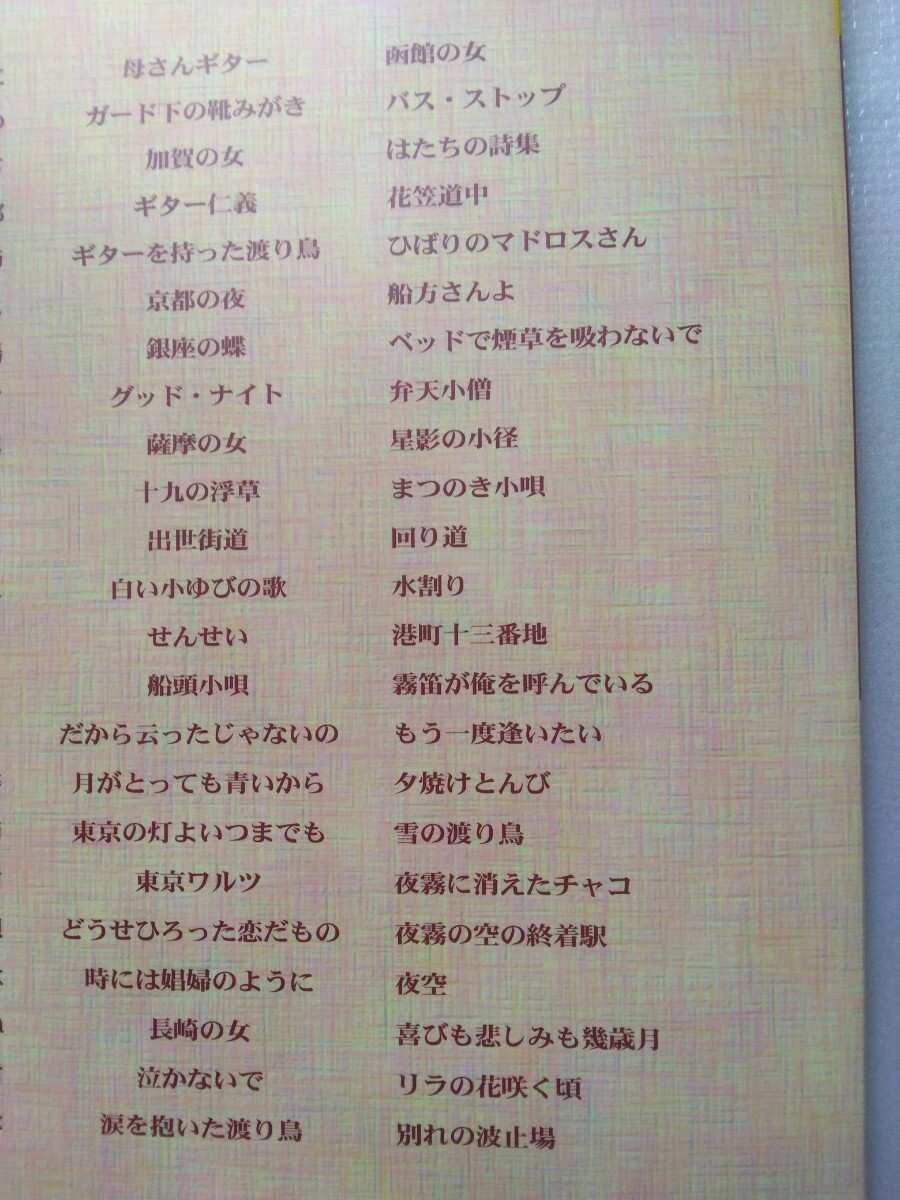 母さんギター
ガード下の靴みがき
加賀の女
ギター仁義
ギターを持った渡り鳥
京都の夜
銀座の蝶
グッド・ナイト
薩摩の女
十九の浮草
出世街道
白い小ゆびの歌
せんせい
船頭小唄
だから云ったじゃないの
月がとっても青いから
東京の灯よいつまでも
東京ワルツ
どうせひろった恋だもの
時には娼婦のように
長崎の女
泣かないで
涙を抱いた渡り鳥
函館の女
バス・ストップ
はたちの詩集
花笠道中
ひばりのマドロスさん
船方さんよ
ベッドで煙草を吸わないで
弁天小僧
星影の小径
まつのき小唄
回り道
水割り
港町十三番地
霧笛が俺を呼んでいる
もう一度逢いたい
夕焼けとんび
雪の渡り鳥
夜霧に消えたチャコ
夜霧の空の終着駅
夜空
喜びも悲しみも幾歳月
リラの花咲く頃
別れの波止場